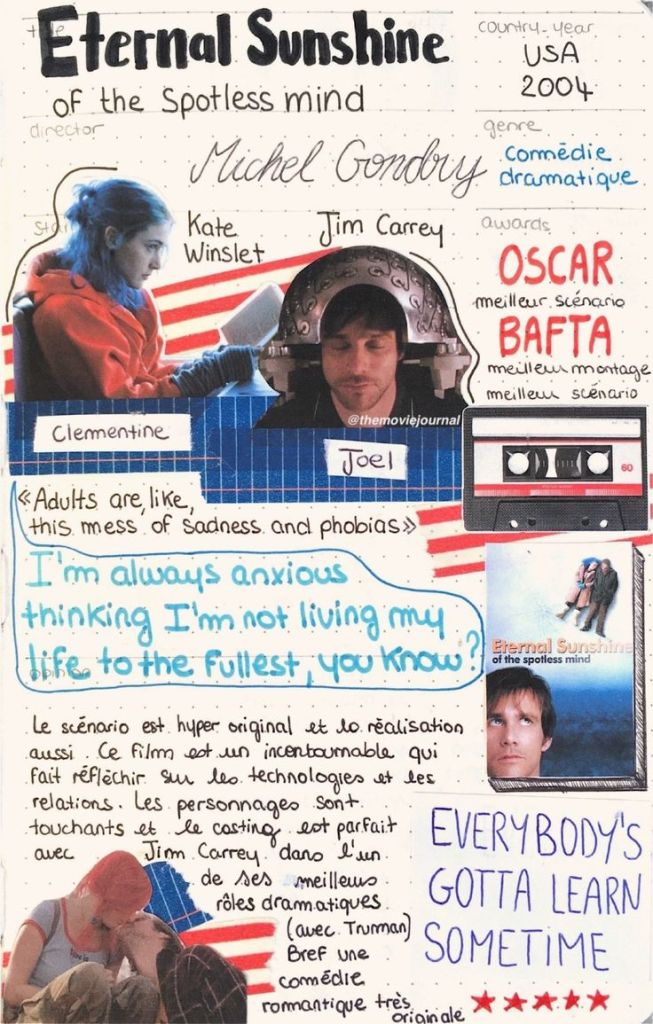 title
Eternal Sunshine
of the spotless mind
country - year
USA
2004
director
Michel Gondry
genre
comédie
dramatique
stars
Kate
Winslet
Jim Carrey
awards
OSCAR
meilleur scénario
BAFTA
meilleur montage
meilleur scénario
@themoviejournal
Clementine
Joel
60
«Adults are, like,
this mess of sadness and phobias»
I'm always anxious
thinking I'm not living my
life to the fullest, you know?
Eternal Sunshine
of the spotless mind
opinion
Le scénario est hyper original et la réalisation
aussi. Ce film est un incontournable qui
fait réfléchir sur les technologies et les
relations. Les personnages sont
touchants et le casting est parfait
avec Jim Carrey dans l'un
de ses meilleurs
rôles dramatiques
(avec Truman)
Bref une
comédie
romantique très
originale
EVERYBODY'S
GOTTA LEARN
SOMETIME